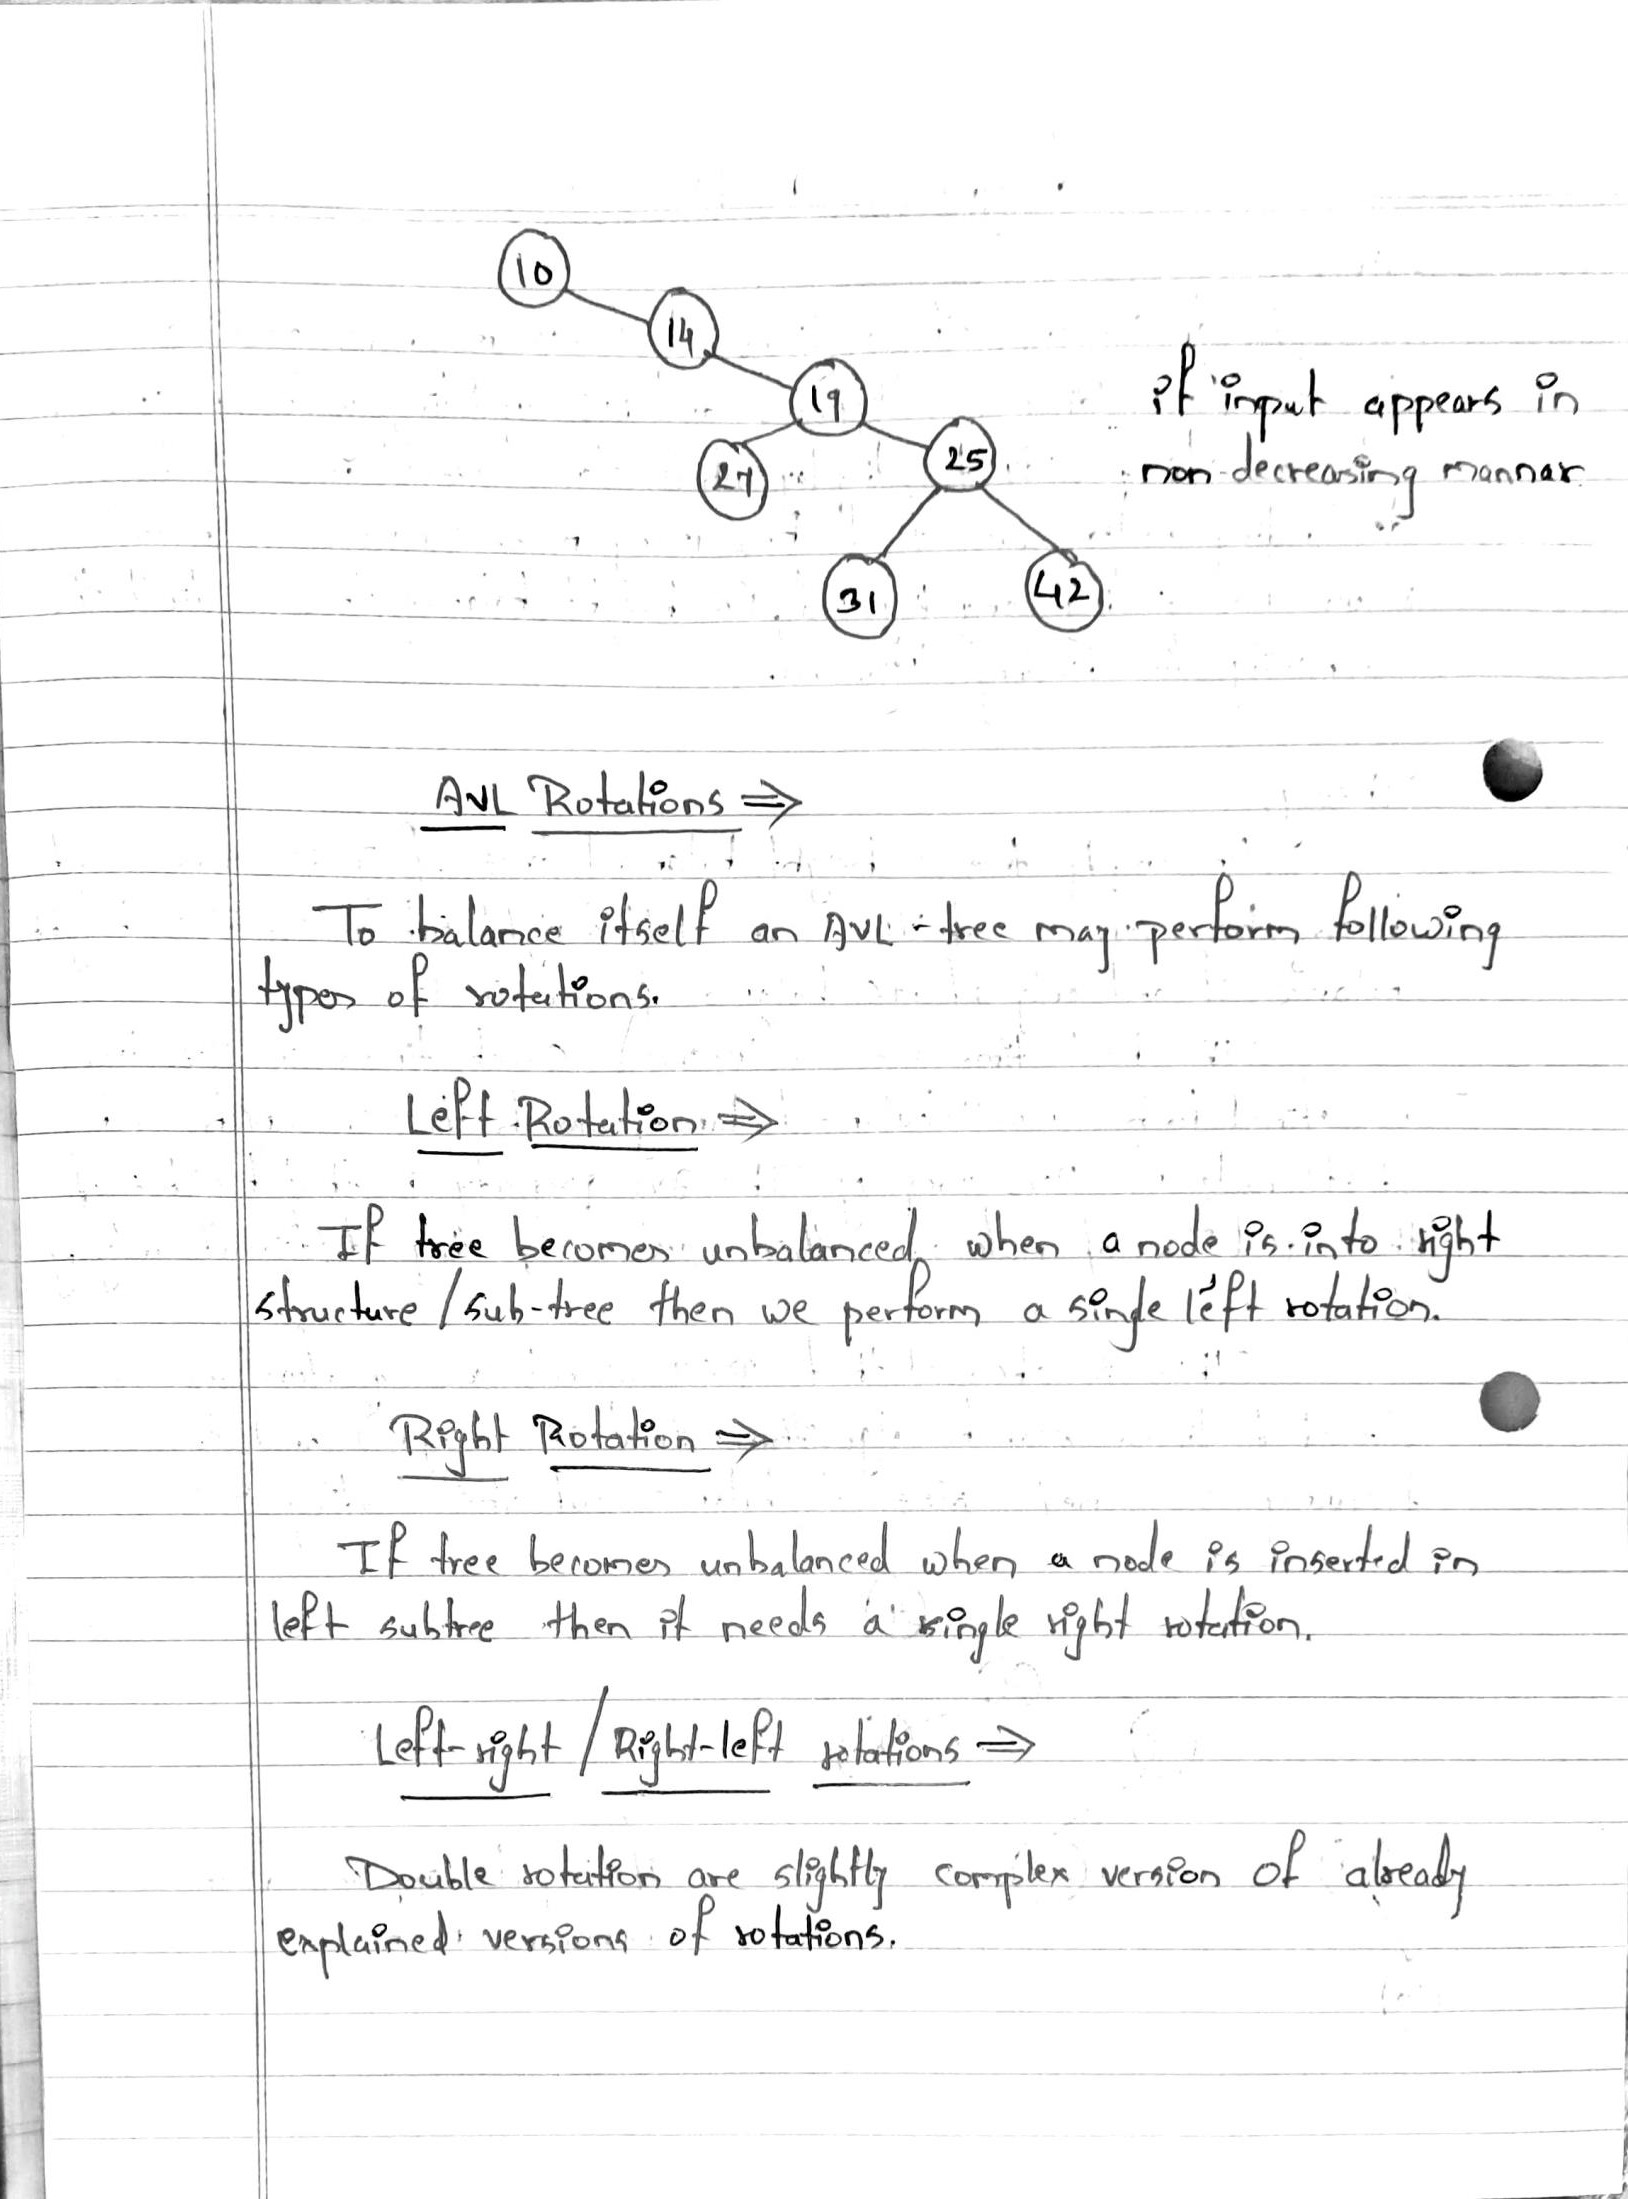 10
14
19
27
25
31
42
if input appears in
non-decreasing mannar
AVL Rotations ⇒
To balance itself an AVL-tree may perform following
types of rotations.
Left Rotation ⇒
If tree becomes unbalanced, when a node is into right
structure / sub-tree then we perform a single left rotation.
Right Rotation ⇒
If tree becomes unbalanced when a node is inserted in
left subtree then it needs a single right rotation.
Left-right / Right-left rotations ⇒
Double rotation are slightly complex version of already
explained versions of rotations.